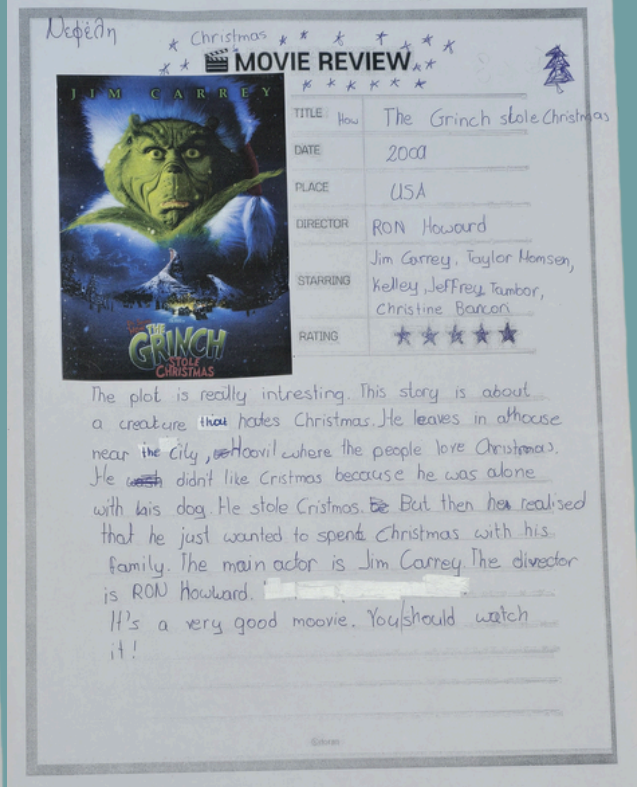 Νεφέλη
Christmas
MOVIE REVIEW
JIM CARREY
TITLE How The Grinch stole Christmas
DATE 2000
PLACE USA
DIRECTOR RON Howard
Jim Carrey, Taylor Momsen,
STARRING Kelley, Jeffrey Tambor,
Christine Barcon
RATING
THE
GRINCH
STOLE
CHRISTMAS
The plot is really intresting. This story is about
a creature that hates Christmas. He leaves in a house
near the City, Hoovil where the people love Christmas.
He didn't like Cristmas because he was alone
with his dog. He stole Cristmas. But then he realised
that he just wanted to spent Christmas with his
family. The main actor is Jim Carrey. The director
is RON Howward.
It's a very good moovie. You should watch
it!